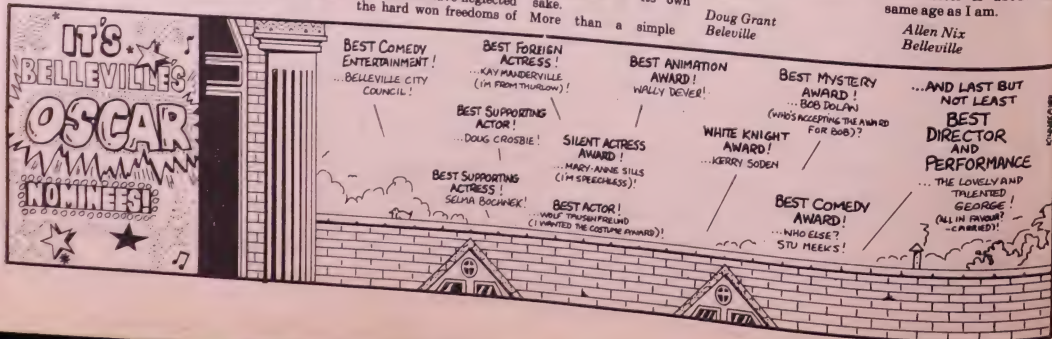 neglected sake.
the hard won freedoms of More than a simple
own
Doug Grant
Beleville
same age as I am.
Allen Nix
Belleville
IT'S
BELLEVILLE'S
OSCAR
NOMINEES!
BEST COMEDY
ENTERTAINMENT!
...BELLEVILLE CITY
COUNCIL!
BEST FOREIGN
ACTRESS!
...KAY MANDERVILLE
(I'M FROM THURLOW)!
BEST SUPPORTING
ACTOR!
...DOUG CROSBIE!
BEST SUPPORTING
ACTRESS!
SELMA BOCHNEK!
SILENT ACTRESS
AWARD!
...MARY-ANNE SILLS
(I'M SPEECHLESS)!
BEST ACTOR!
...WOLF TAUSENFREUND
(I WANTED THE COSTUME AWARD)!
BEST ANIMATION
AWARD!
WALLY DEVER!
WHITE KNIGHT
AWARD!
...KERRY SODEN
BEST MYSTERY
AWARD!
...BOB DOLAN
(WHO'S ACCEPTING THE AWARD
FOR BOB)?
BEST COMEDY
AWARD!
...WHO ELSE?
STU MEEKS!
...AND LAST BUT
NOT LEAST
BEST
DIRECTOR
AND
PERFORMANCE
... THE LOVELY AND
TALENTED
GEORGE!
(ALL IN FAVOUR?
-CARRIED)!